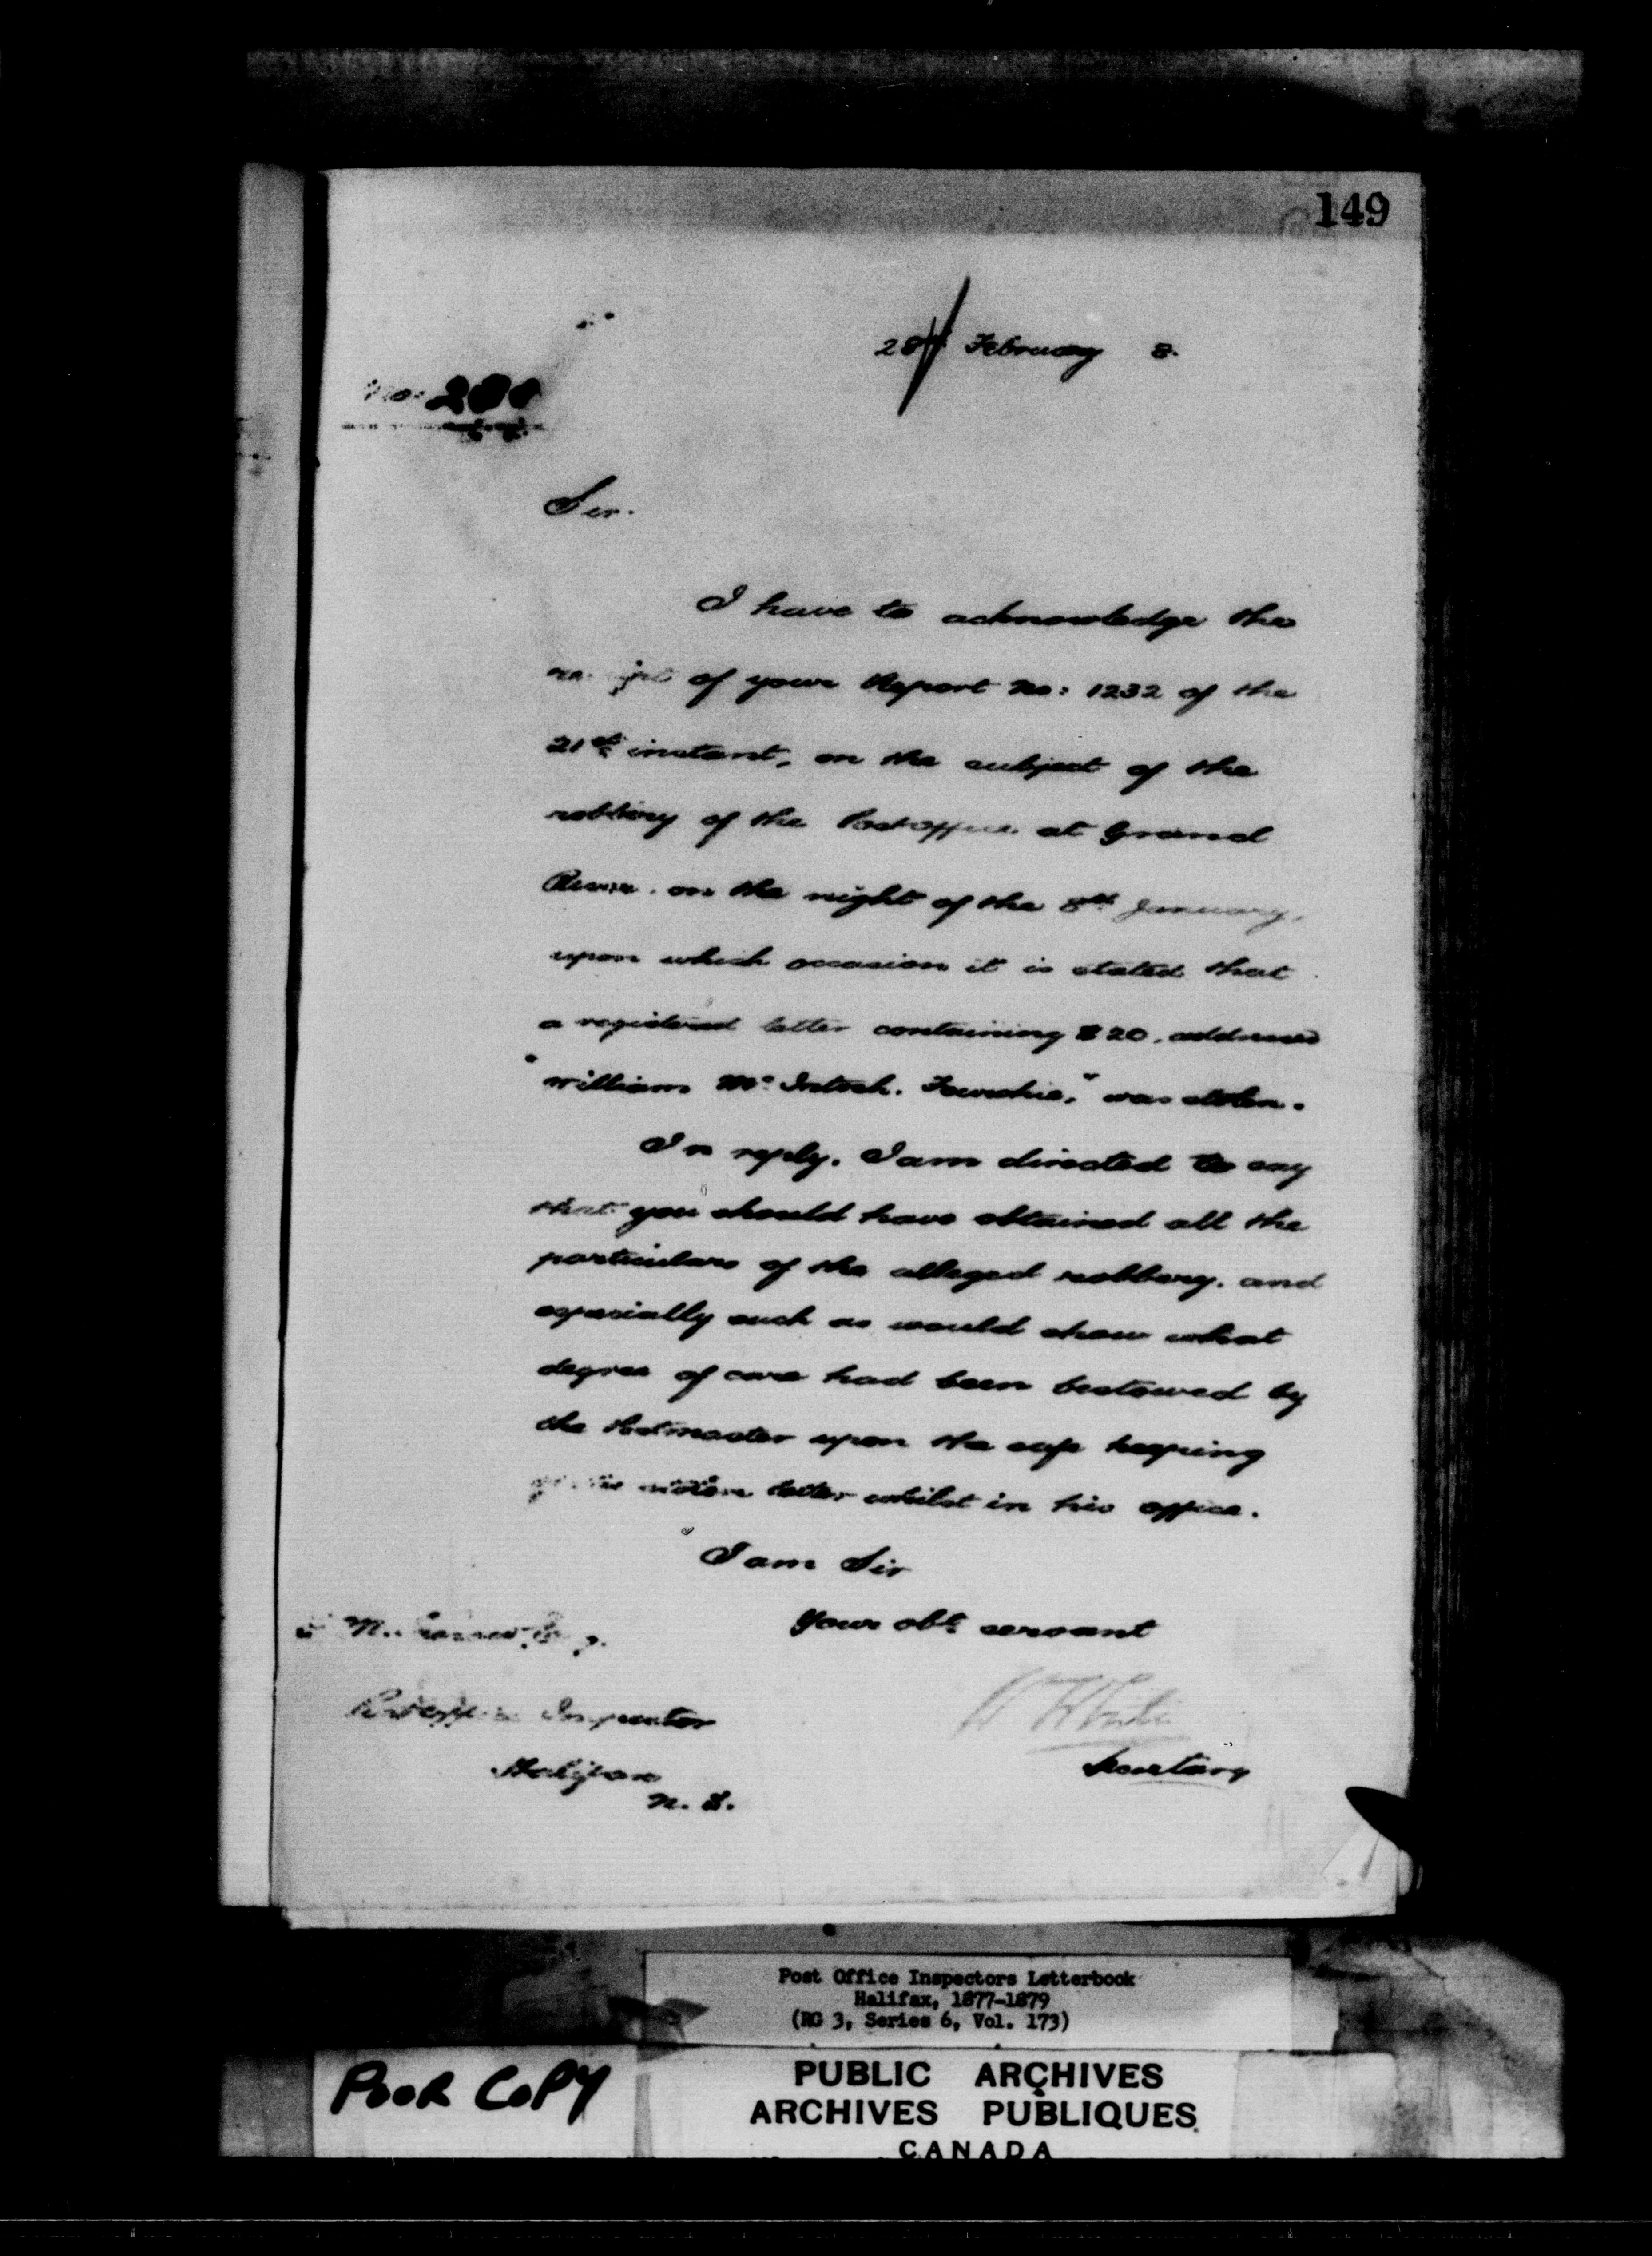 149
28th February 8.
No: 200
Sir.
I have to acknowledge the
receipt of your Report No: 1232 of the
21st instant, on the subject of the
robbery of the Post office at Grand
on the night of the 8th January,
upon which occasion it is stated that
a registered letter containing $20. addressed
"William Mc Intosh. Fourchie," was stolen.
In reply. I am directed to say
that you should have obtained all the
particulars of the alleged robbery. and
especially such as would show what
degree of care had been bestowed by
the Postmaster upon the safe keeping
of the stolen letter whilst in his office.
I am Sir
Your obt servant
Secretary
Post office Inspector
Halifax
N. S.
Post Office Inspectors Letterbook
Halifax, 1877-1879
(RG 3, Series 6, Vol. 173)
POOR COPY
PUBLIC ARCHIVES
ARCHIVES PUBLIQUES
CANADA